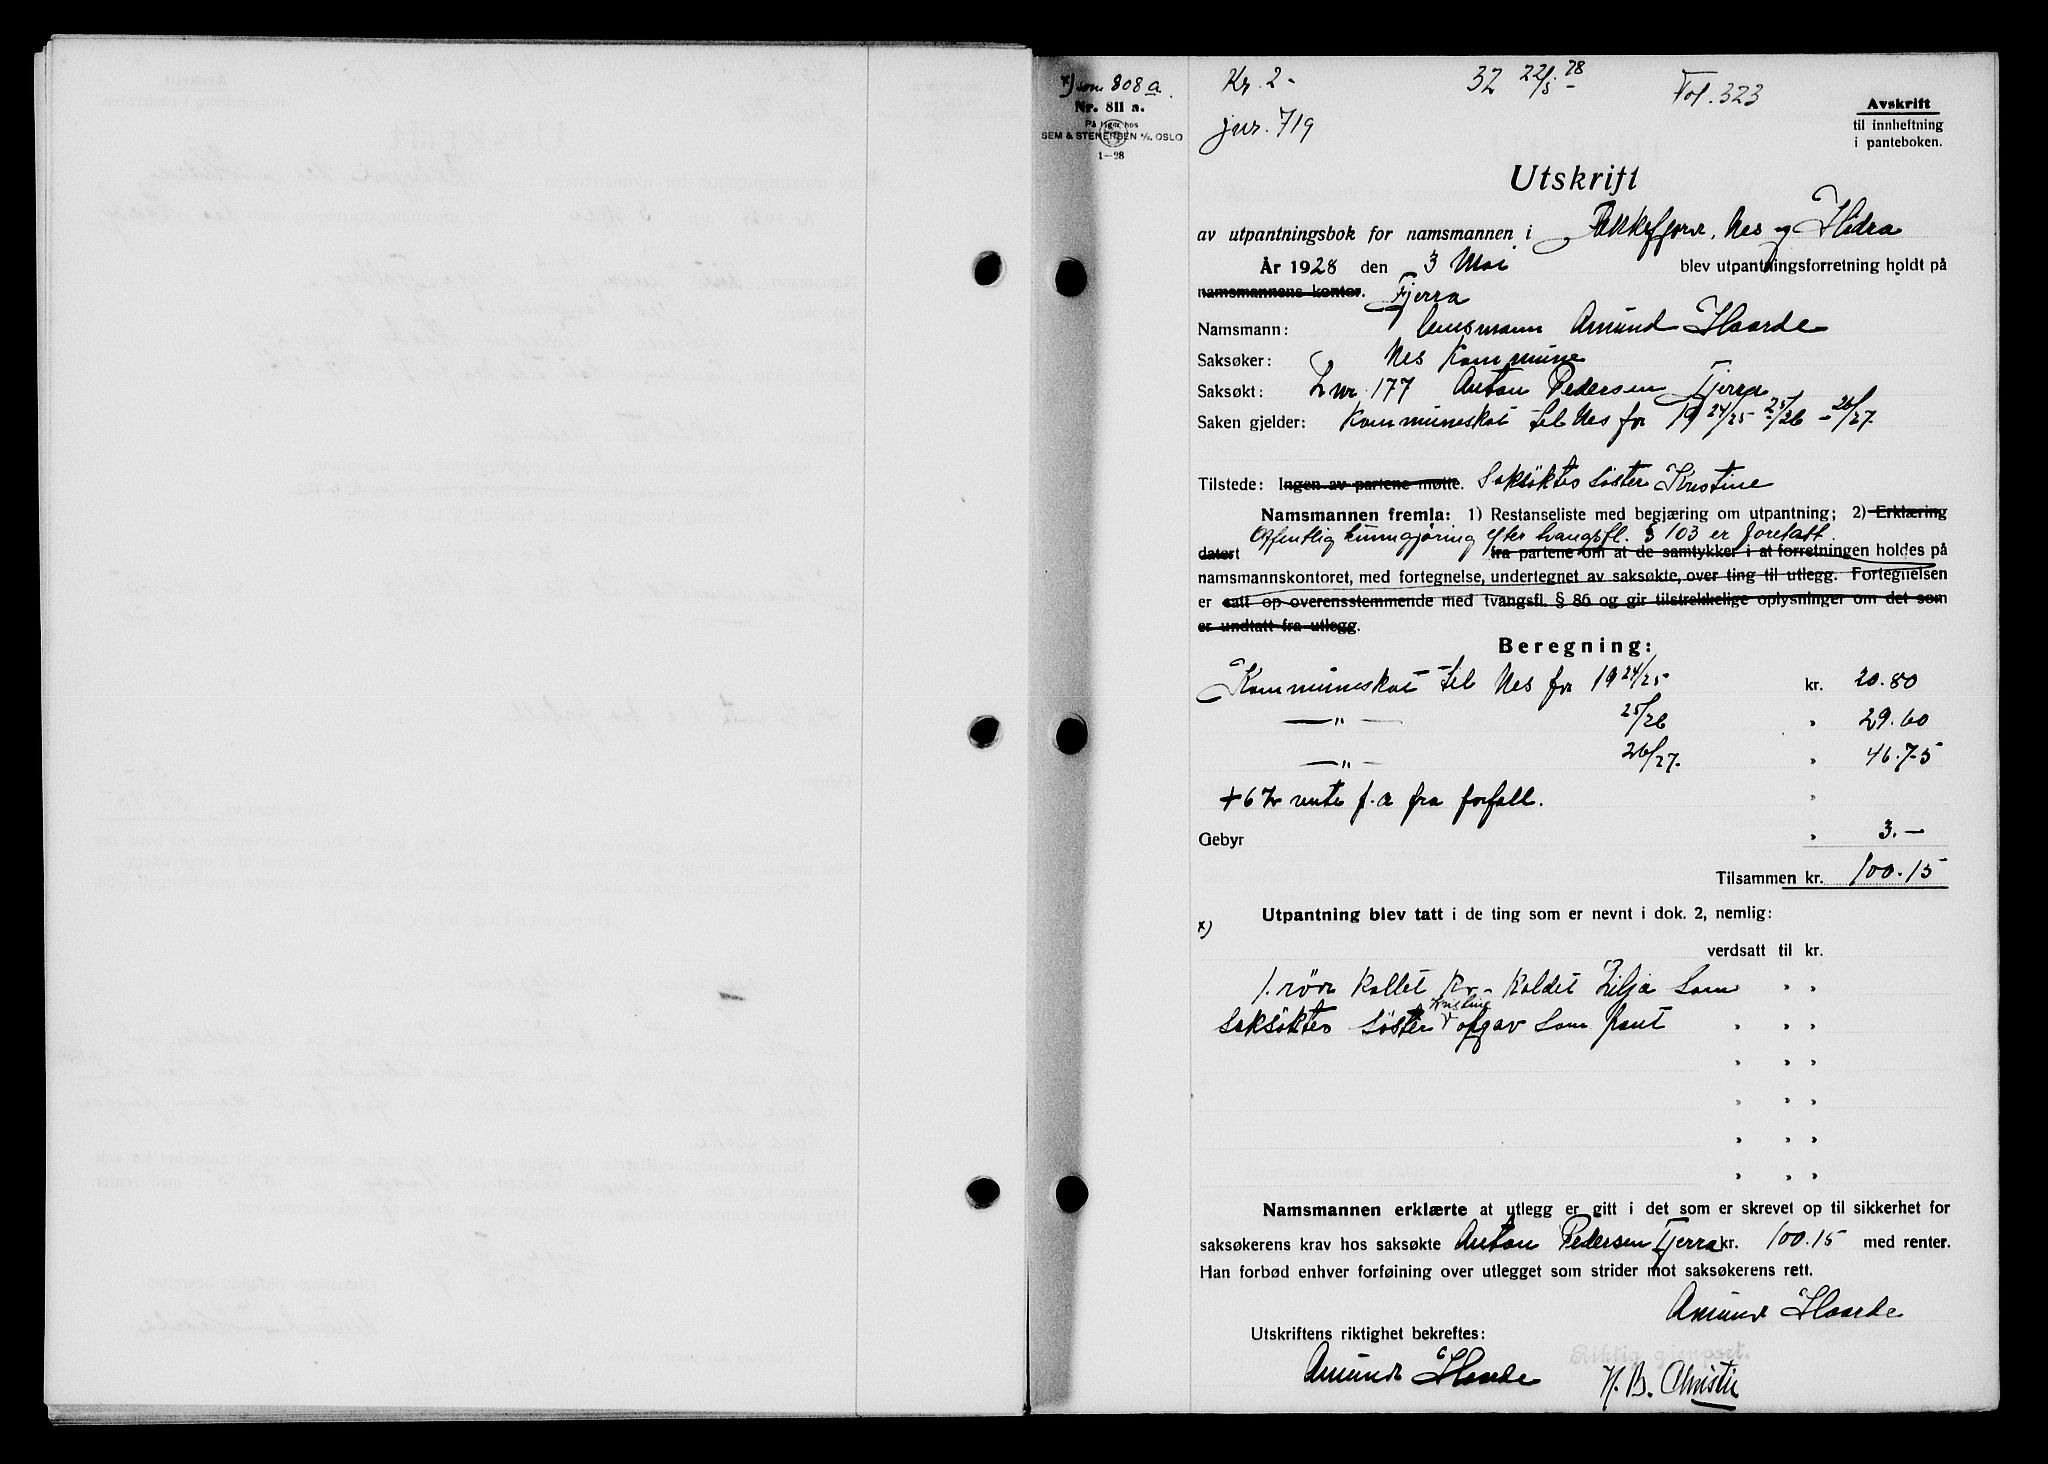 x) som 808 a.
Nr. 811 a.
På lager hos
SEM & STENERSEN A/S, OSLO
1—28
Kr. 2-
jnr. 719
32 22/5 28
Fol. 323
Avskrift
til innheftning
i panteboken.
Utskrift
av utpantningsbok for namsmannen i Bakke, Nes og Hidra
År 1928 den 3 Mai blev utpantningsforretning holdt på
namsmannens kontor. Fjerra
Namsmann: lensmann Amund Haarde
Saksøker: Nes Kommune
Saksøkt: Lnr 177 Anton Pedersen Fjerra
Saken gjelder: Kommuneskat til Nes for 1924/25 25/26 - 26/27.
Tilstede: Ingen av partene møtte. Saksøktes søster Kristine
Namsmannen fremla: 1) Restanseliste med begjæring om utpantning; 2) Erklæring
Offentlig kunngjøring efter tvangsfl. § 103 er foretatt.
datert fra partene om at de samtykker i at forretningen holdes på
namsmannskontoret, med fortegnelse, undertegnet av saksøkte, over ting til utlegg. Fortegnelsen
er satt op overensstemmende med tvangsfl. § 86 og gir tilstrekkelige oplysninger om det som
er undtatt fra utlegg.
Beregning:
Kommuneskat til Nes for 1924/25 kr. 20.80
—"— 25/26 " 29.60
—"— 26/27. " 46.75
+ 6 % rente p.a fra forfall. "
Gebyr " 3.—
Tilsammen kr. 100.15
Utpantning blev tatt i de ting som er nevnt i dok. 2, nemlig:
x)
verdsatt til kr.
1. rød kollet Ku - Kaldet Lilja som " "
saksøktes søster Kristine opgav som pant " " "
" " "
" " "
" " "
" " "
Namsmannen erklærte at utlegg er gitt i det som er skrevet op til sikkerhet for
saksøkerens krav hos saksøkte Anton Pedersen Fjerra kr. 100.15 med renter.
Han forbød enhver forføining over utlegget som strider mot saksøkerens rett.
Amund Haarde
Utskriftens riktighet bekreftes:
Riktig gjenpart.
Amund Haarde
H. B. Christie